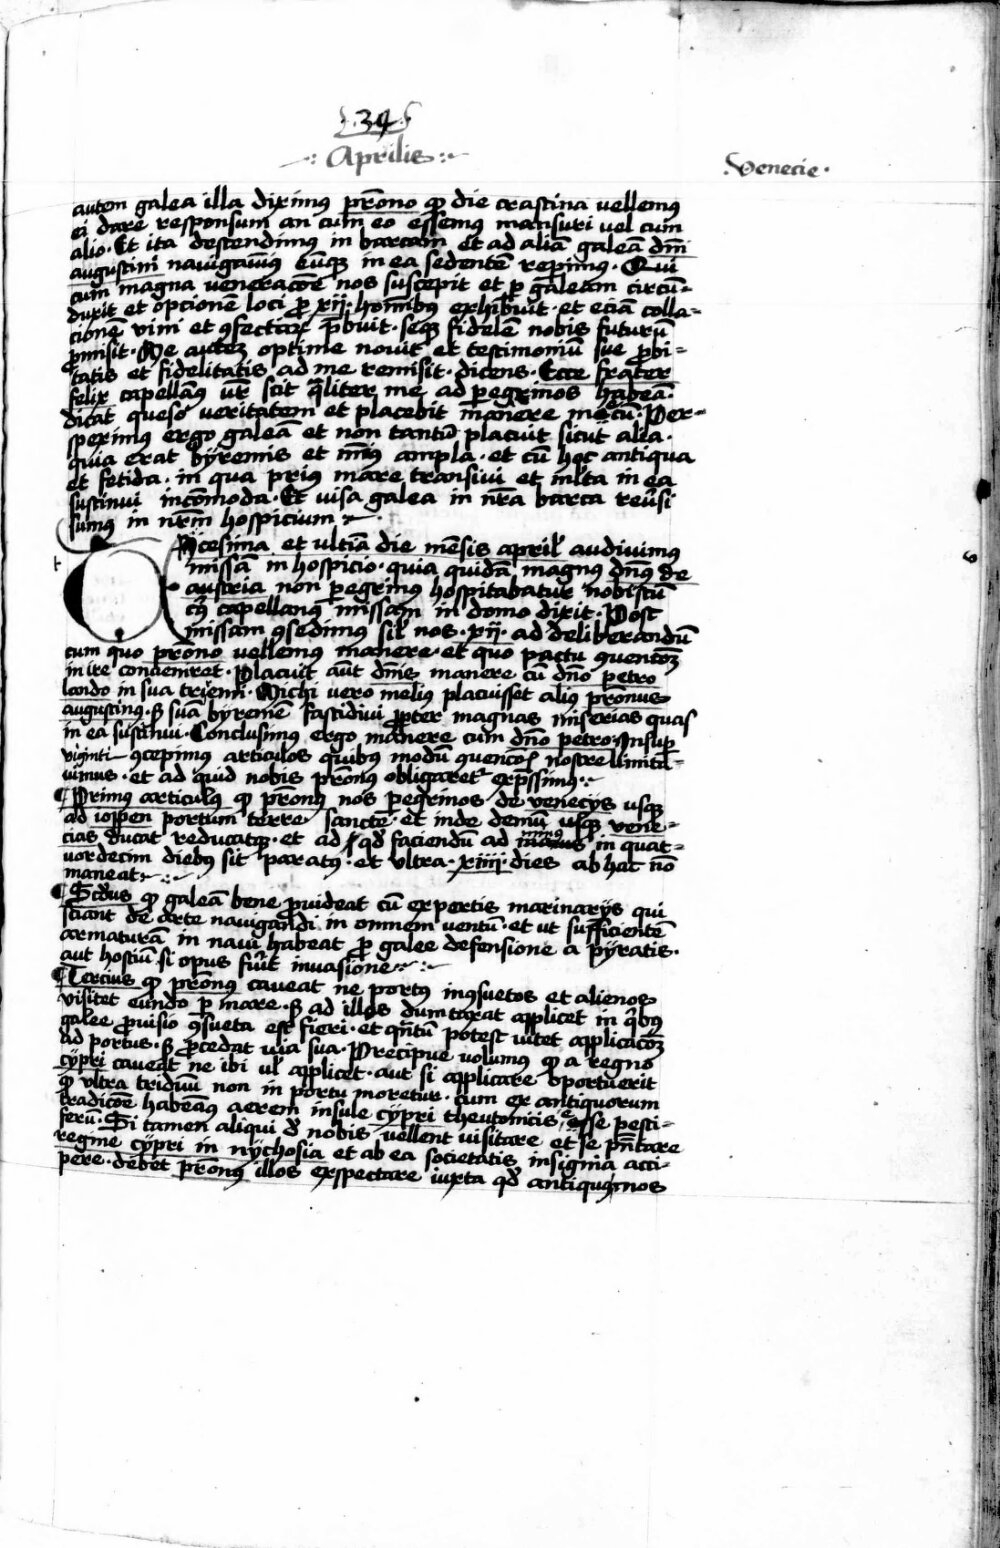 34
Aprilis
Venecie
autem galea illa diximus p̄rono qꝫ die crastina vellemus
ei dare responsum an cum eo essemus mansuri vel cum
alio. Et ita descendimus in barcam et ad aliā galeā dm̄
augustini nauigauim9 eumqꝫ in ea sedentē repimus. Qui
cum magna veneracōe nos suscepit et p galeam circū-
duxit et opcionem loci p xij. hominibus exhibuit. et eciā colla-
cionē vini et ꝯfectarꝫ p̄buit. seqꝫ fidelē nobis futurū
p̄misit. Me autem optime nouit et testimoniū sue p̄bi-
tatis et fidelitatis ad me remisit. dicens. Ecce frater
felix capellan9 vr̄ scit qualiter me ad peg̊rinos habeā.
dicat queso veritatem et placebit manere mecū. Per-
speximus ergo galeā et non tantū placuit sicut alia.
quia erat byremis et min9 ampla. et cū hoc antiqua
et fetida. in qua prius mare transiui et ml̄ta in ea
sustinui incōmoda. Et visa galea in nr̄a barca reu̓si
sumus in nr̄m hospicium
Vicesima et vltiā die mēsis april̓ audiuimus
missā in hospicio. quia quidā magnus dn̄9 de
austria non peg̊rinus hospitabatur nobiscū
cui9 capellanus missam in domo dixit. Post
missam ꝯsedimus sil̓ nos. xij. ad deliberandū
cum quo p̄rono vellemus manere. et quo pactu ꝯuencōꝫ
inire conuenıret. Placuit aūt dn̄is manere cū dn̄o petro
lando in sua triremi. Michi vero melius placuisset alius p̄ronus
augustinus. sꝫ suā byremē fastidiui ꝓpter magnas miserias quas
in ea sustinui. Conclusimus ergo manere cum dn̄o petro. Insup
viginti ꝯcepimus articulos quibus modū ꝯuencōis nostre limita-
uimus. et ad quid nobis p̄ronus obligaretur exp̄ssimus.
¶ Primus articulus qꝫ p̄ronus nos peg̊rinos de venecijs usqꝫ
ad ioppen portum terre sancte. et inde demū usqꝫ vene-
cias ducat reducatqꝫ. et ad qd̓ faciendū ad minus in quat-
uordecim diebus sit paratus. et vltra. xiiij. dies ab hac nō
maneat
¶ Scd̓us qꝫ galeā bene ꝓuideat cū expertis marinarijs qui
sciant de arte nauigandi in omnem ventū. et vt sufficientē
armaturā in naui habeat p galee defensione a pyratis.
aut hostiū. si opus fu̓it inuasione
¶ Tercius qꝫ p̄ronus caueat ne portus inꝯsuetos et alienos
visitet eundo p mare. sꝫ ad illos dumtaxat applicet in qu̓bus
galee ꝓuisio ꝯsueta est fieri. et qn̄tū potest vitet applicacōꝫ
ad portus. sꝫ ꝓcedat via sua. Precipue volumus qꝫ a regno
cypri caueat ne ibi vl̓ applicet. aut si applicare oportuerit
qꝫ vltra triduū non in portu moretur. cum ex antiquorum
tradicōe habeam9 aerem insule cypri theutonicis esse pesti-
ferū. Si tamen aliqui d̓ nobis vellent visitare et se pn̄tare
regine cypri in nychosia et ab ea societatis insignia acci-
pere. debet p̄ronus illos exspectare iuxta qd̓ antiquus mos